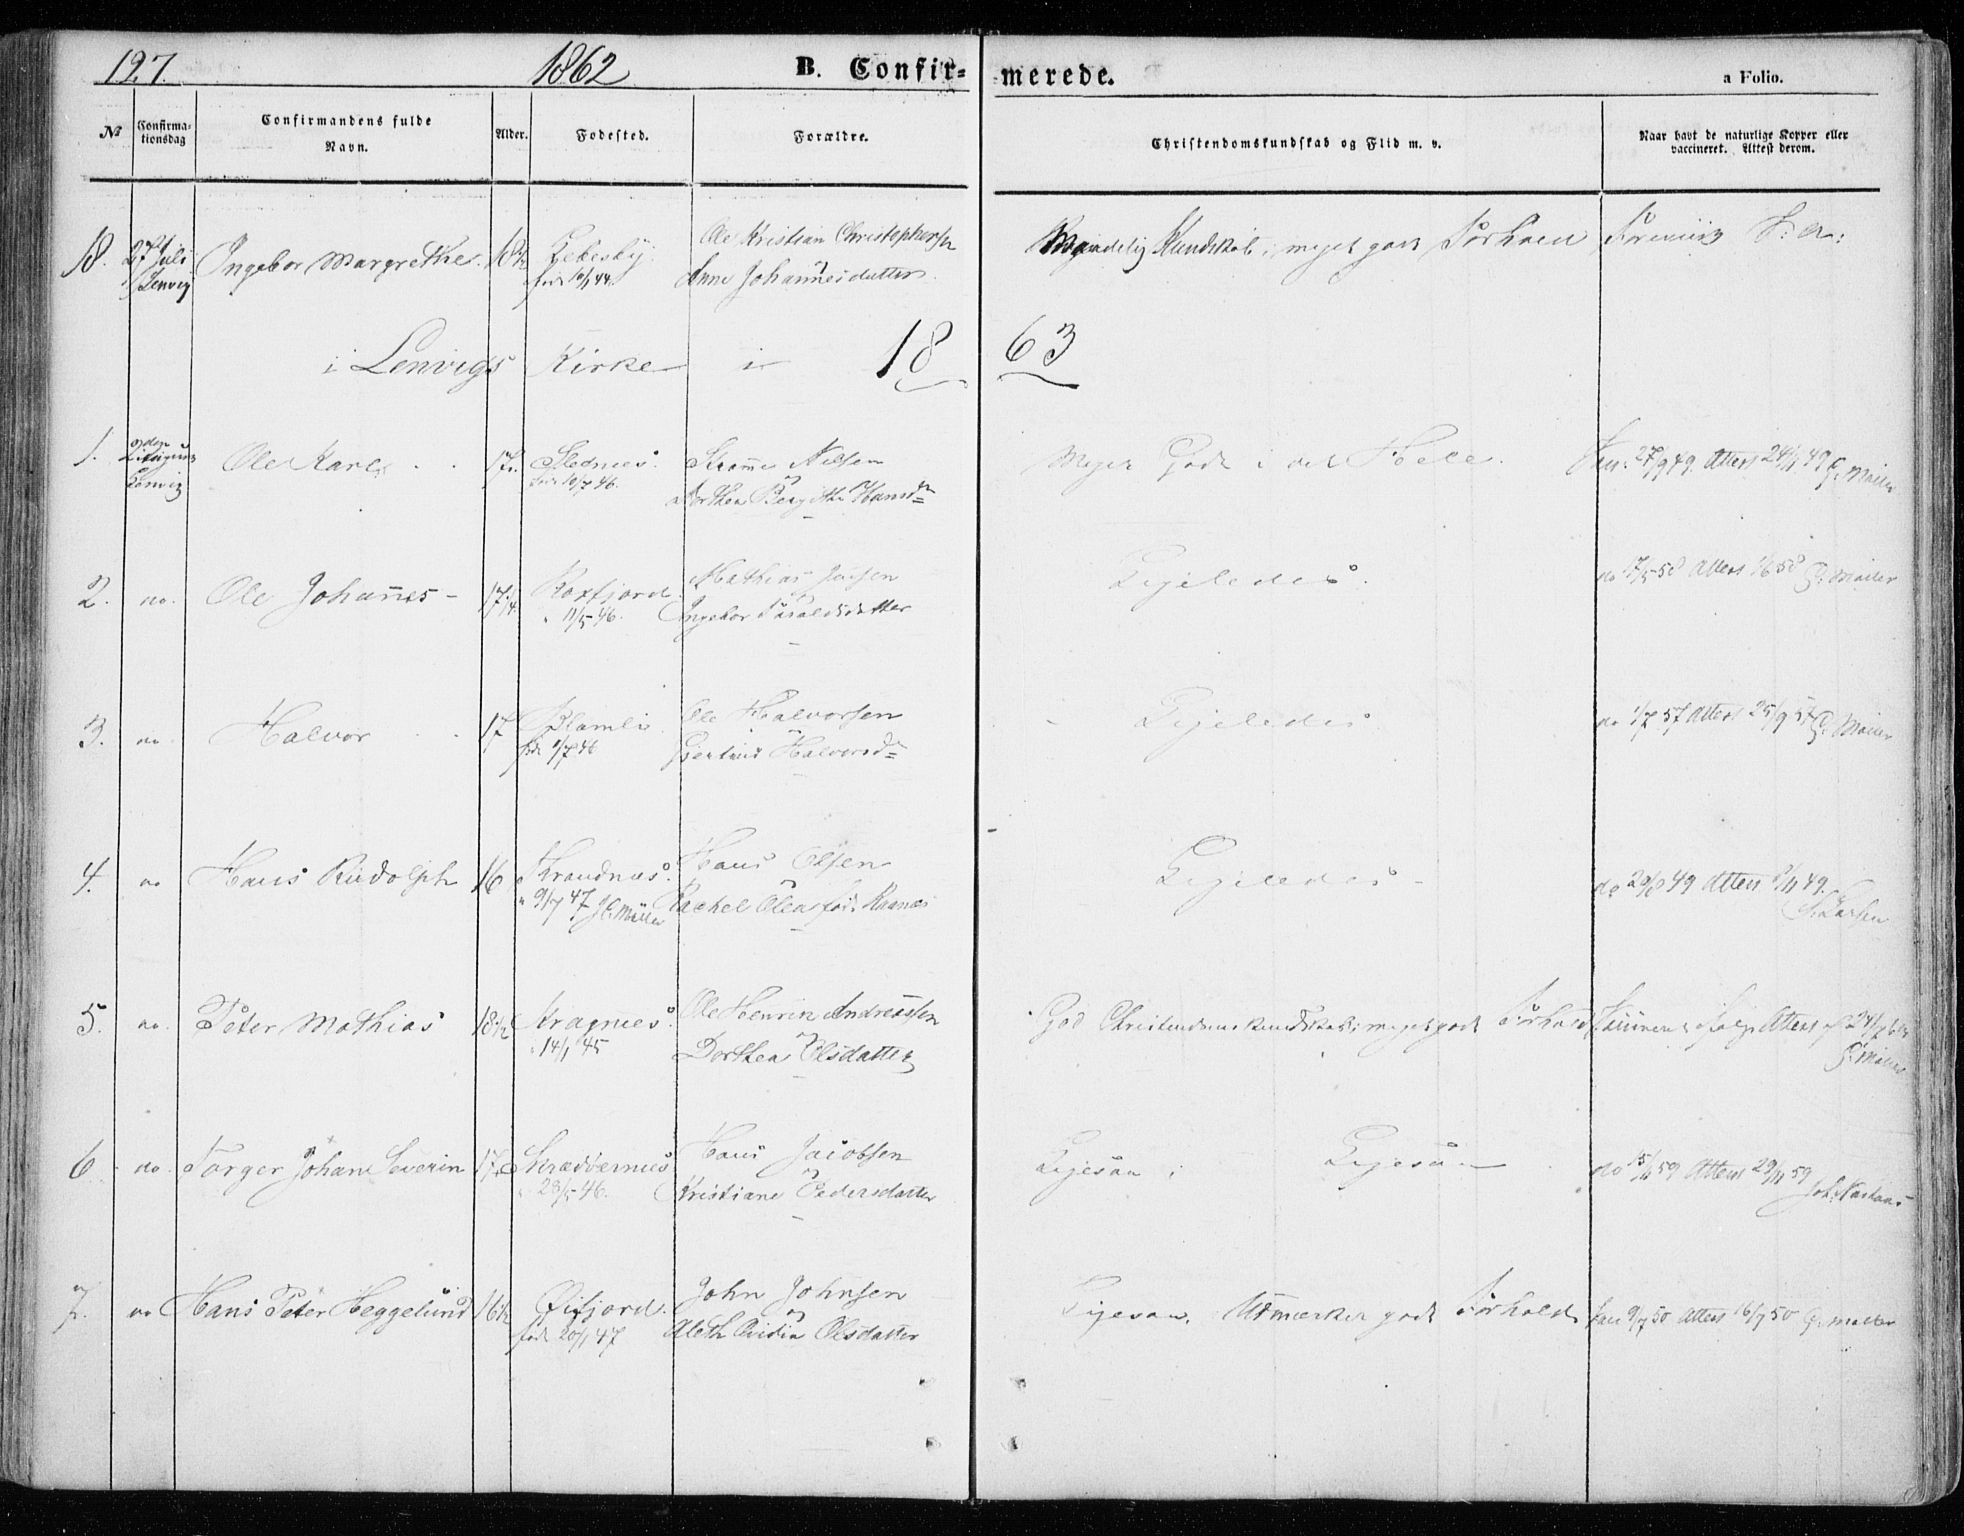 127. 1862 B. Confir- merede. a Folio.
No Confirma-tionsdag Confirmandens fulde Navn. Alder. Fodested. Forældre. Christendomskundskab og Flid m. v. Naar havt de naturlige Kopper eller vaccineret. Attest derom.
18. 27 Juli Lenvig Ingebor Margrethe 18½ Lebesby. Ole Kristian Christophersen
født 10/1 44 Anne Johannesdatter
Maadelig Kundskab; meget godt Forhold
i Lenvigs Kirke i 1863
1. Lenvig Ole Karl 17 Slednæs. Nilsen
født 10/7 46. Dorthea Bergithe Hansdr
Meget Godt i det Hele. Vac: 27/9 49. Attest 24/11 49 G. Møller
2. do. Ole Johannes - 17¼. Roxfjord. Mathias
11/5 46. Ingebor
Ligeledes. do 17/5 50 Attest 1/6 50 G: Møller
3. do Halvor 17 Ole Halvorsen
født 1/7 46 Gjertrud Halvorsdr
Ligeledes do 1/7 57 Attest 25/9 57 G: Møller
4. do Hans Rudolph 16 Strandnæs. Hans Olsen
" 9/7 47 Møller Rachel Olea født
Ligeledes - do 49 Attest 49. Larsen
5. do. Peter Mathias 18½ Kragnæs. Ole Henrik Andreassen
" 14/1 45 Dorthea Olsdatter
God Christendomskundskab; meget godt Forhold Attest af 24/7
G: Møller
6 do. Torger Johan Severin 17 Skrædværnæs Hans Jacobsen
" 28/5 46. Kristiane Pedersdatter
Ligesaa; Ligesaa do 15/11 59 Attest 29/11 59
7. do Hans Peter Heggelund 16½ Øifjord. John Johnsen
født 20/1 47 Aleth Olsdatter
Ligesaa. Udmærket godt Forhold Vac 9/7 50 Attest 16/7 50 G: Møller